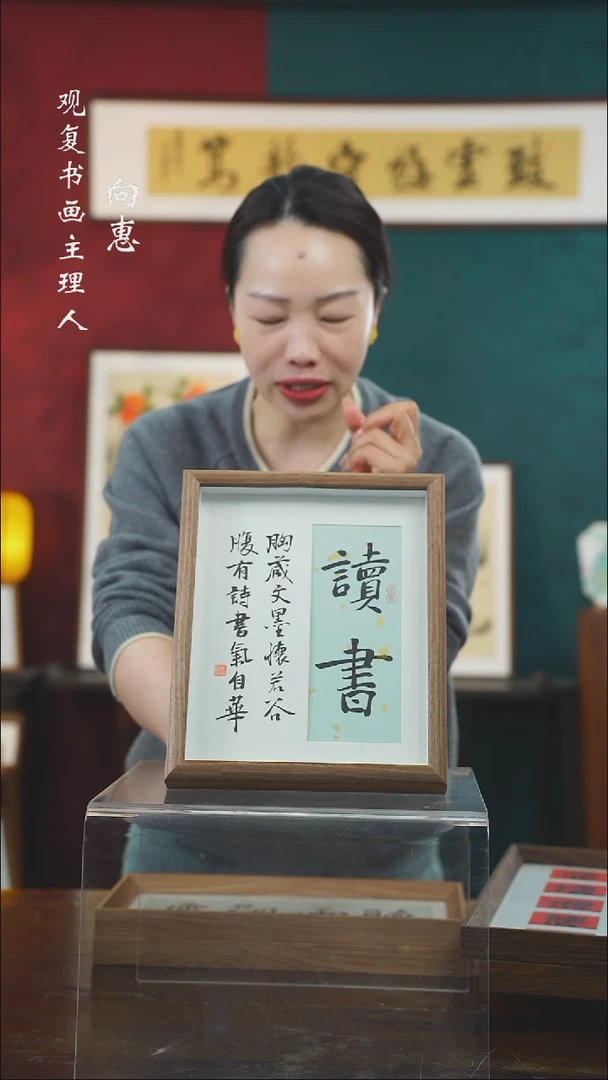 观复书画主理人
向惠
致虚極守静篤
讀書
胸藏文墨懷若谷
腹有詩書氣自華